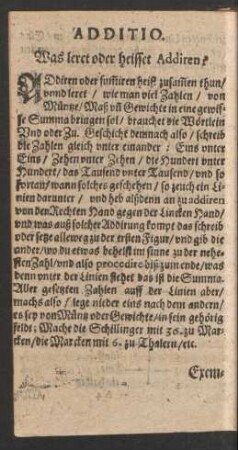 ADDITIO.
Was leret oder heisset Addiren?
ADdiren oder sum̃iren heist zusam̃en thun/
vnnd leret / wie man viel Zahlen / von
Müntze/ Maß vñ Gewichte in eine gewis-
se Summa bringen sol/ brauchet die Wörtlein
Vnd oder Zu. Geschicht demnach also / schreib
die Zahlen gleich vnter einander : Eins vnter
Eins/ Zehen vnter Zehen / die Hundert vnter
Hundert/ das Tausend vnter Tausend/ vnd so
fortan/ wann solches geschehen/ so zeuch ein Li-
nien darunter / vnd heb alßdenn an zu addiren
von der Rechten Hand gegen der Lincken Hand/
vnd was auß solcher Addirung kompt das schreib
oder setze alleweg zu der ersten Figur/ vnd gib die
ander/ wo du etwas behelst im sinne zu der nehe-
sten Zahl/ vnd also procedire diß zum ende/ was
denn vnter der Linien stehet das ist die Summa.
Aller gesetzten Zahlen auff der Linien aber/
machs also / lege nieder eins nach dem andern/
es sey von Müntz oder Gewichte/ in sein gehörig
feld: Mache die Schillinger mit 36. zu Mar-
cken/ die Marcken mit 6. zu Thalern/ etc.
Exem-